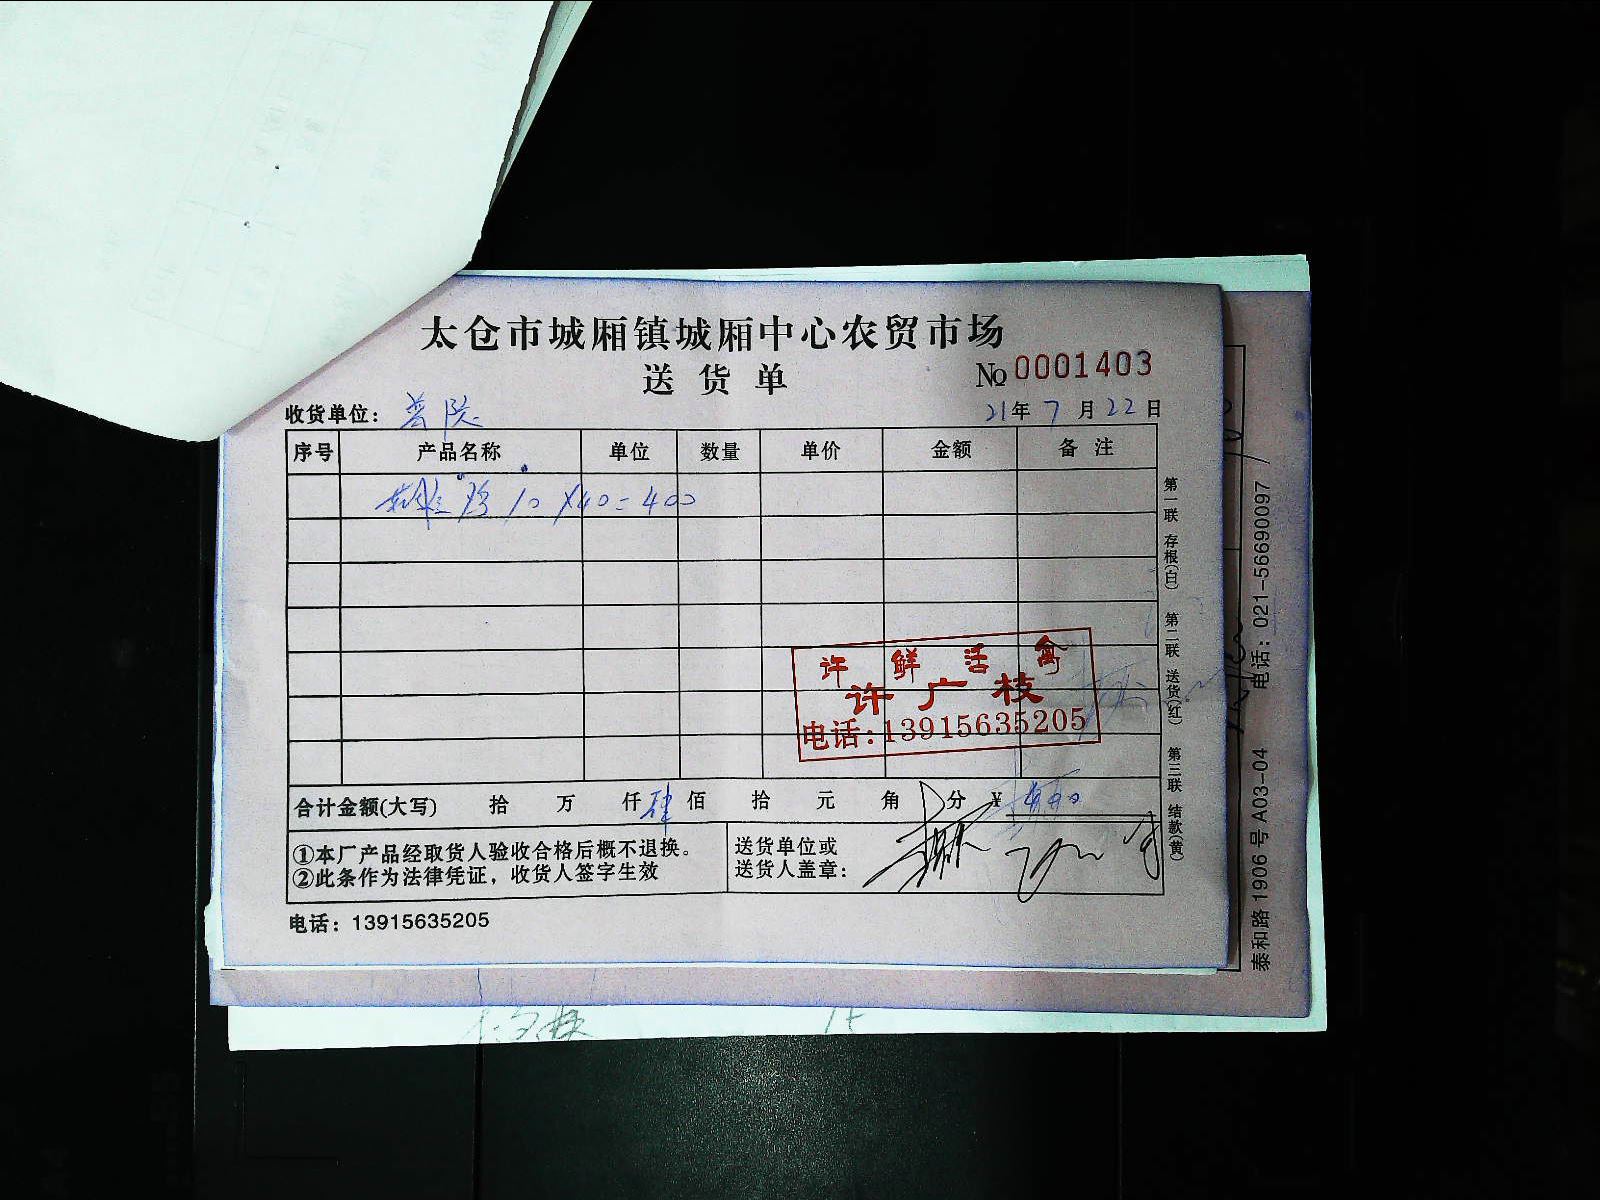 太仓市城厢镇城厢中心农贸市场
送货单
No 0001403
收货单位： 普陀
21年 7月 22日
序号 产品名称 单位 数量 单价 金额 备注
鸡 10 X40=400
第一联 存根(白) 第二联 送货(红) 第三联 结款(黄)
许鲜活禽
许广枝
电话:13915635205
合计金额(大写) 拾 万 仟 肆 佰 拾 元 角 分 ¥
①本厂产品经取货人验收合格后概不退换。
②此条作为法律凭证，收货人签字生效
送货单位或
送货人盖章：
电话：13915635205
泰和路 1906 号 A03-04 电话：021-56690097